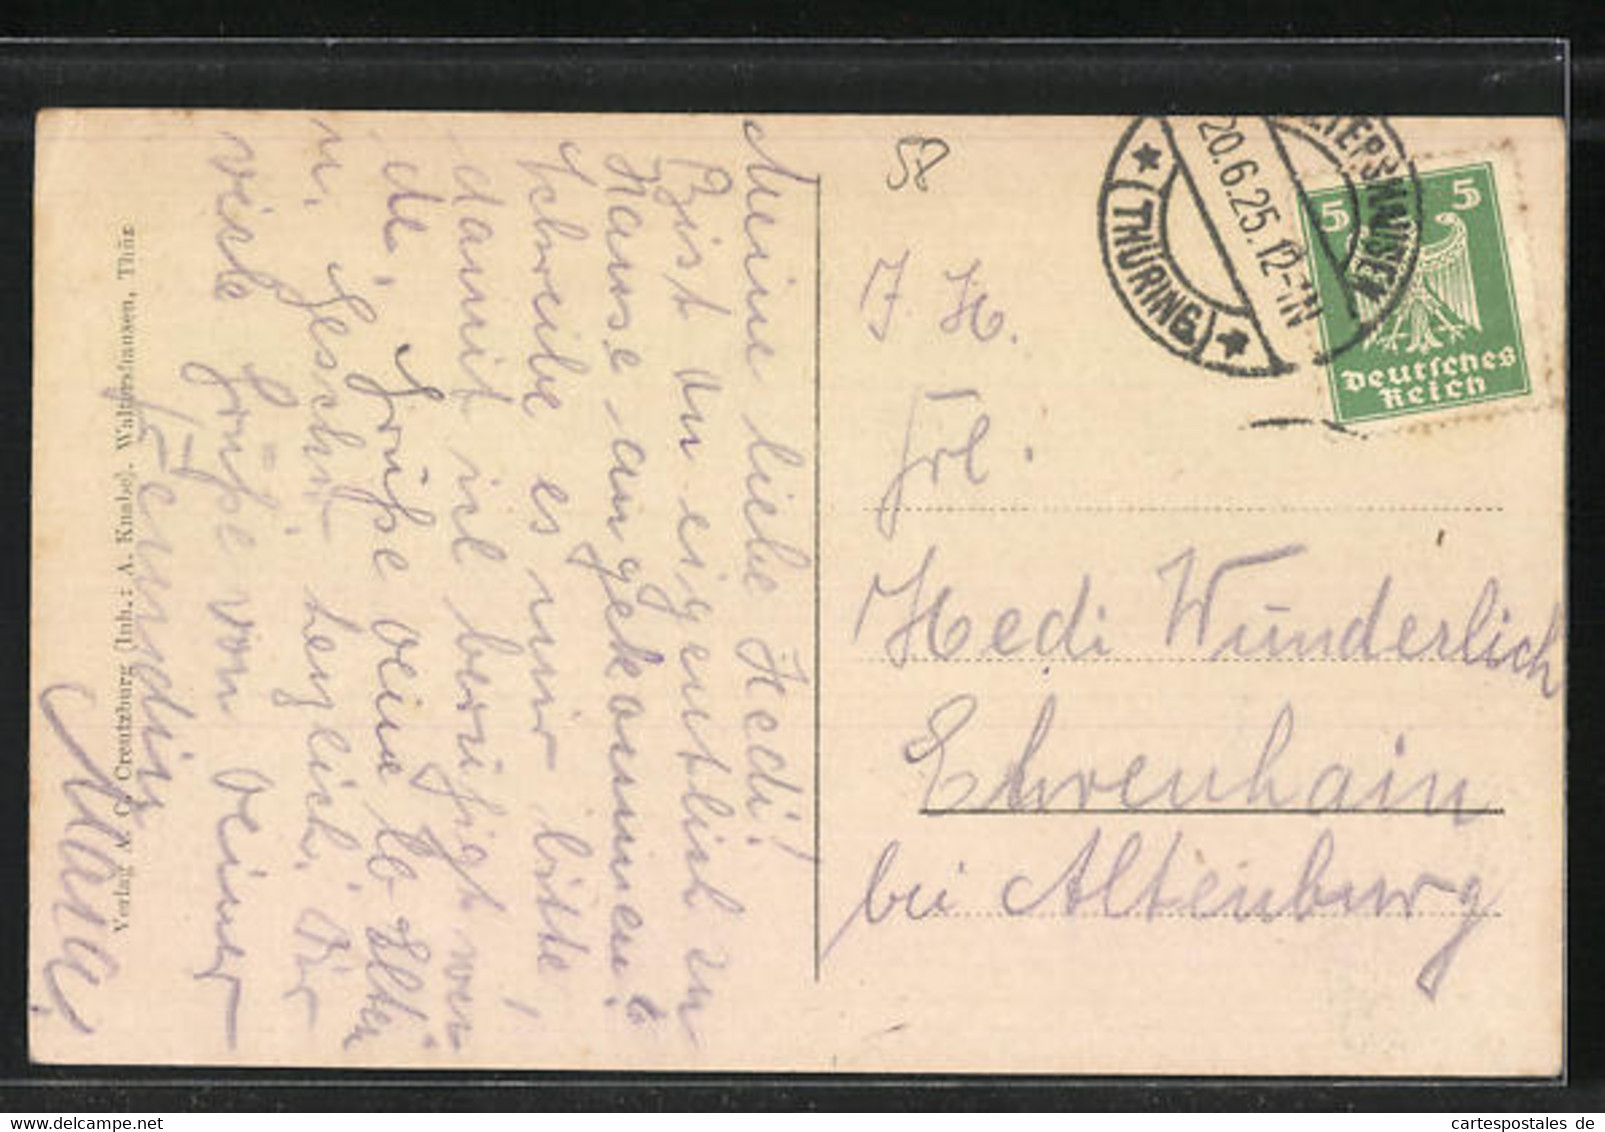 Meine liebe Hedi!
Bist du eigentlich zu
Hause angekommen?
Schreibe es mir bitte,
damit ich beruhigt wer
de. Grüße deine lb Eltern
u. Geschw. herzlich. Dir
viele Grüße von deiner
Freundin
Verlag v. C. Creutzburg (Inh.: A. Knabe). Waltershausen, Thür
58
THÜRING
20.6.25.12-1N
LTERSHAUSEN
5 5
Deutsches
Reich
J. H.
Frl.
Hedi Wunderlich
Ehrenhain
bei Altenburg
delcampe.net
cartespostales de